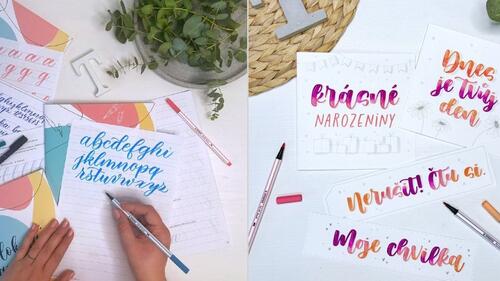 abcdefghi
jklmnopq
rstuvwxyz
krásné
NAROZENINY
Dnes
je tvůj
den
Nerušit! Čtu si.
Moje chvilka